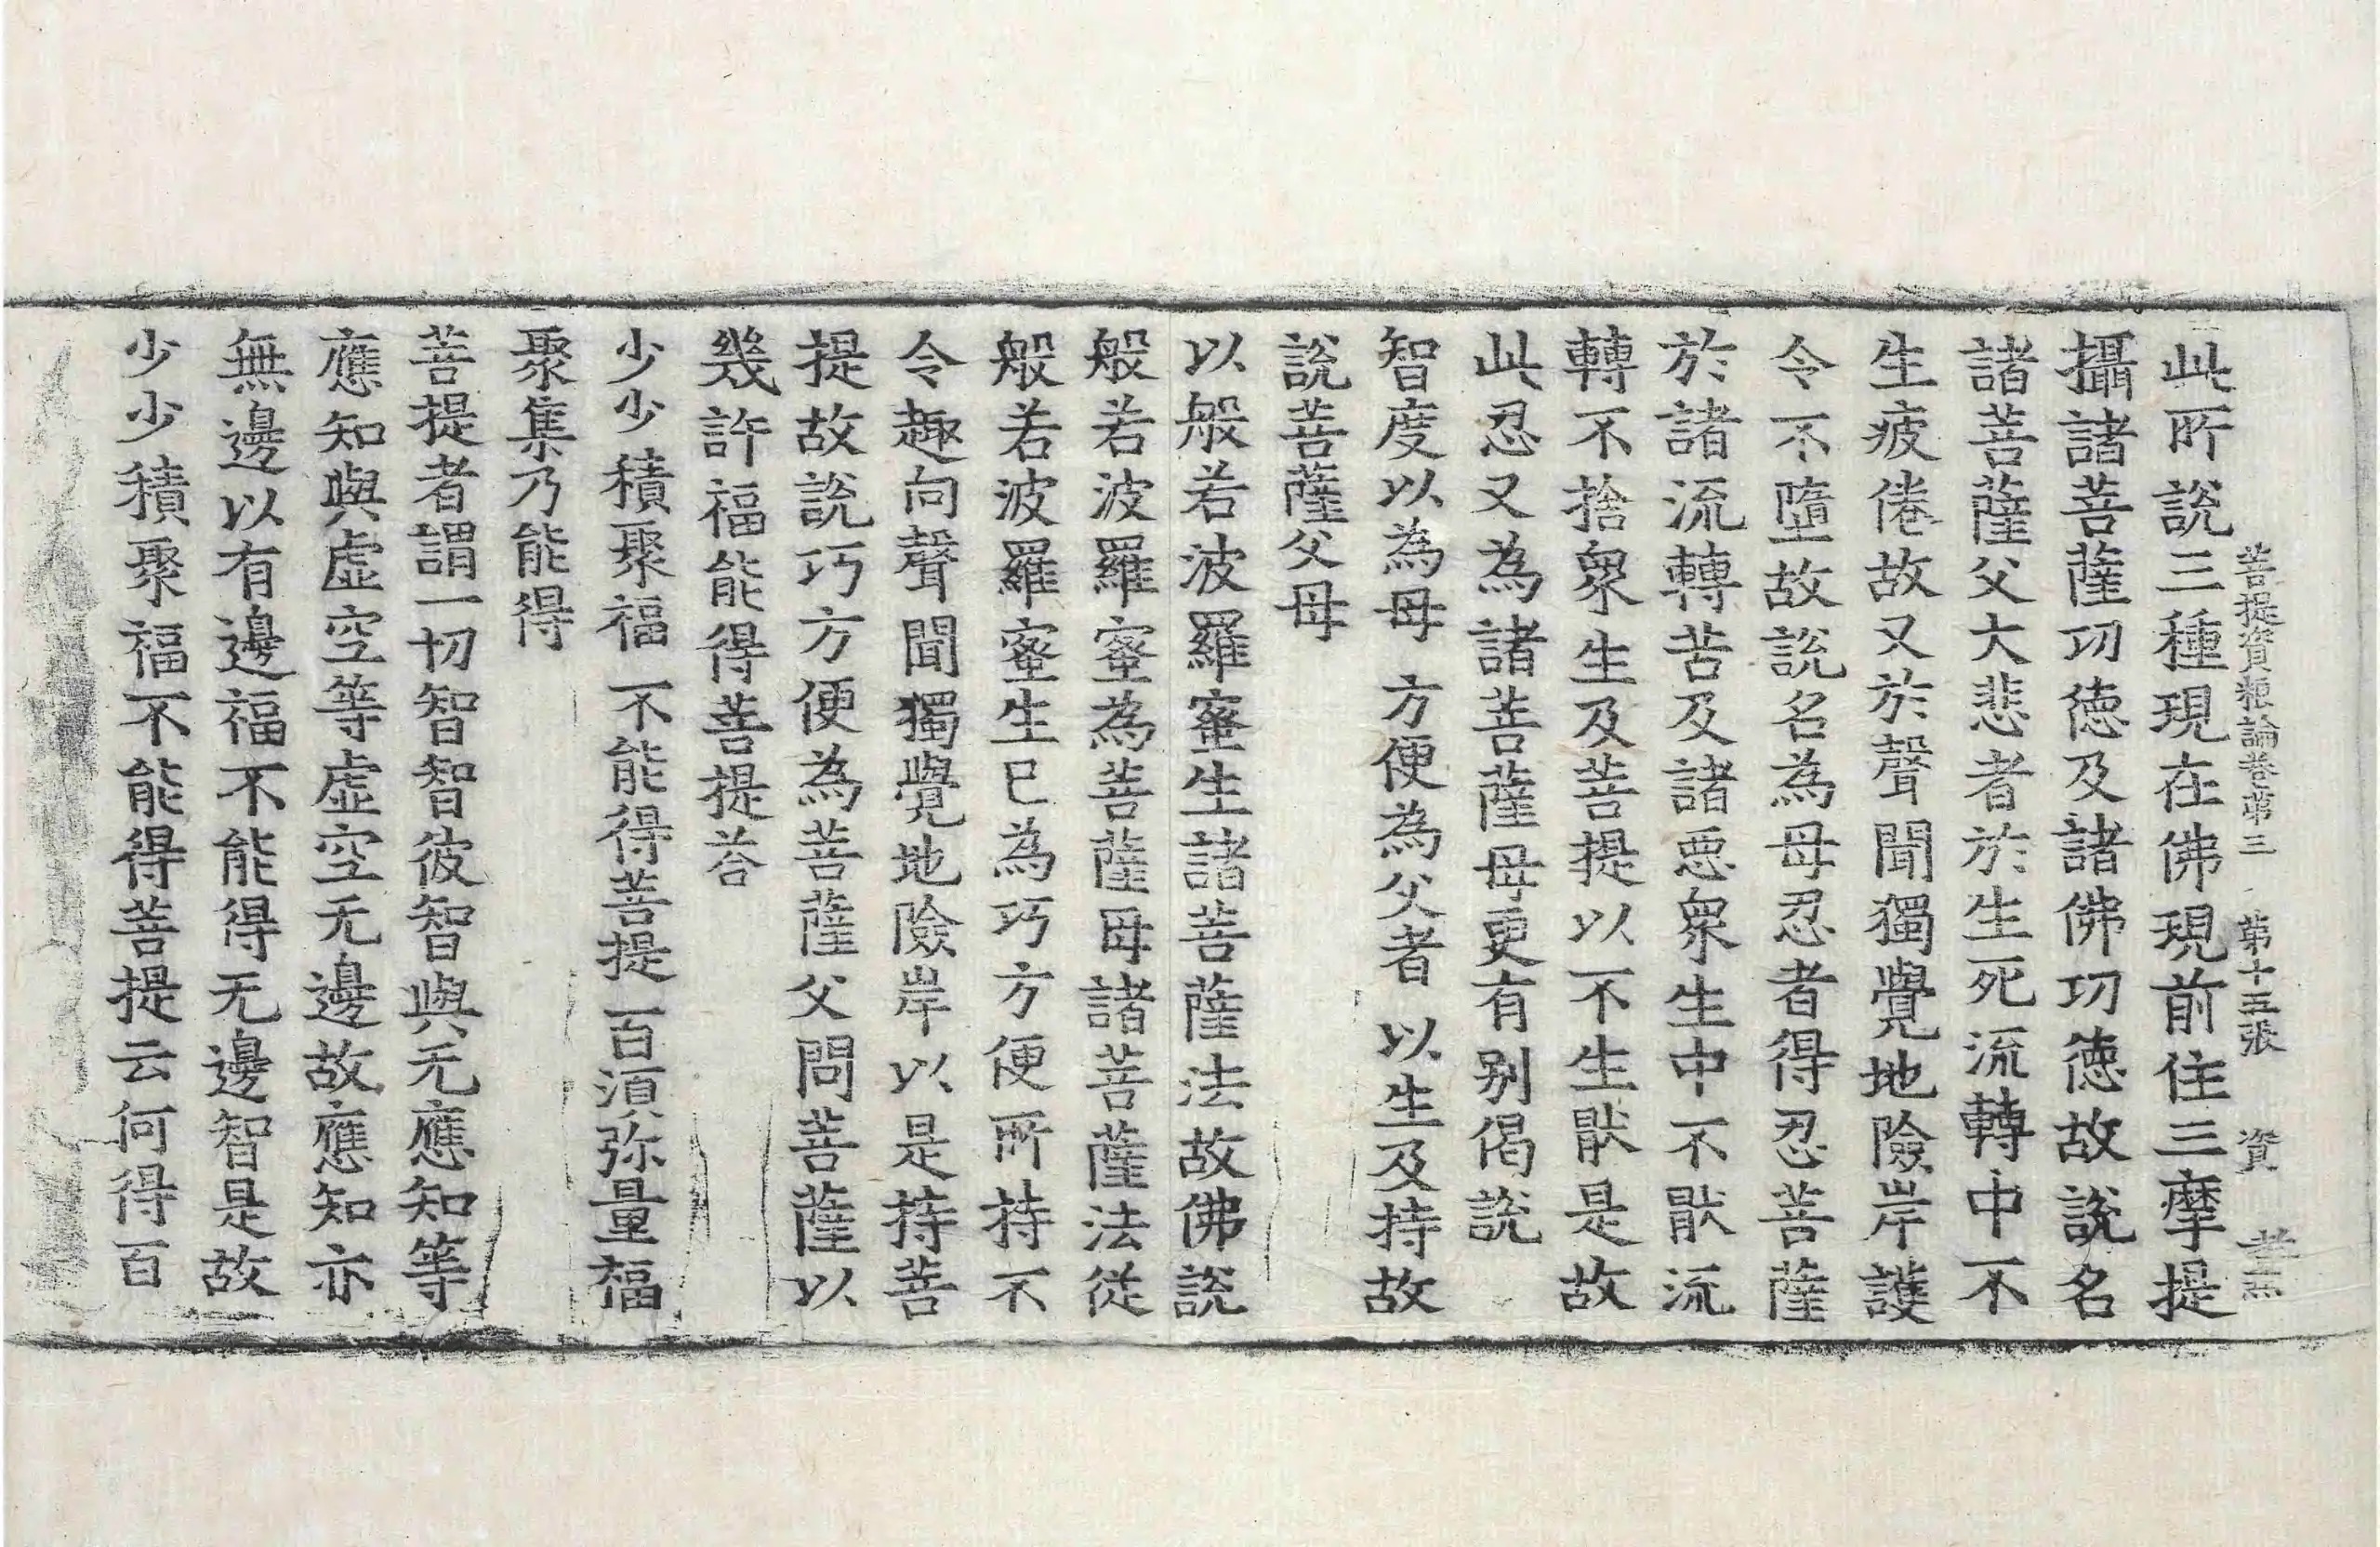 菩提資粮論卷第三 第十五張 資
此所說三種現在佛現前住三摩提
攝諸菩薩㓛德及諸佛㓛德故說名
諸菩薩父大悲者於生死流轉中不
生疲倦故又於聲聞獨覺地險岸護
令不墮故說名為母忍者得忍菩薩
於諸流轉苦及諸惡衆生中不猒流
轉不捨衆生及菩提以不生猒是故
此忍又為諸菩薩母更有别偈說
智度以為母 方便為父者 以生及持故
說菩薩父母
以般若波羅蜜生諸菩薩法故佛說
般若波羅蜜為菩薩母諸菩薩法從
般若波羅蜜生已為巧方便所持不
令趣向聲聞獨覺地險岸以是持菩
提故說巧方便為菩薩父問菩薩以
幾許福能得菩提荅
少少積聚福 不能得菩提 百須弥量福
聚集乃能得
菩提者謂一切智智彼智與无應知等
應知與虛空等虛空无邊故應知亦
無邊以有邊福不能得无邊智是故
少少積聚福不能得菩提云何得百